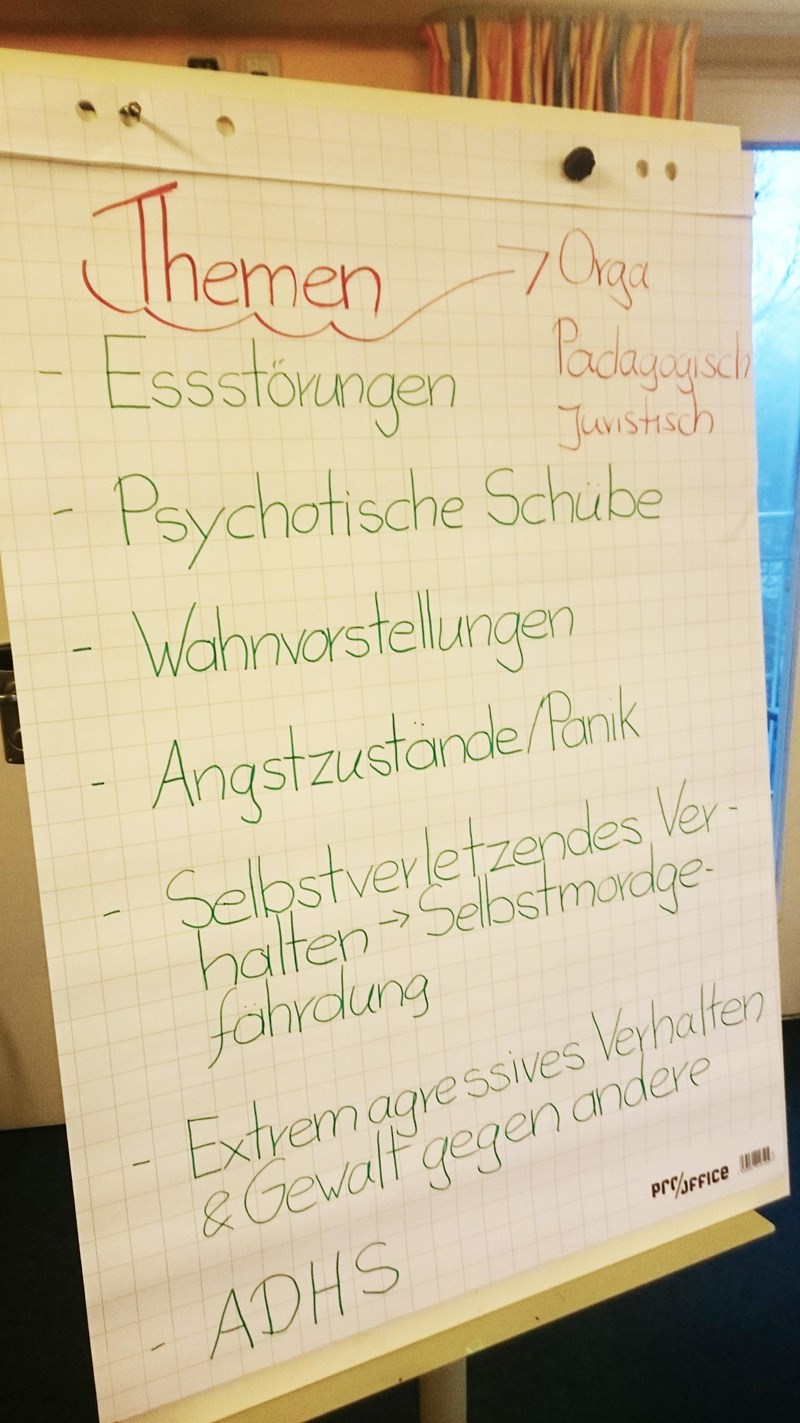 Themen
→ Orga
Pädagogisch
Juristisch
- Essstörungen
- Psychotische Schübe
- Wahnvorstellungen
- Angstzustände/Panik
- Selbstverletzendes Ver-
halten → Selbstmordge-
fährdung
- Extrem agressives Verhalten
& Gewalt gegen andere
- ADHS
pro/office